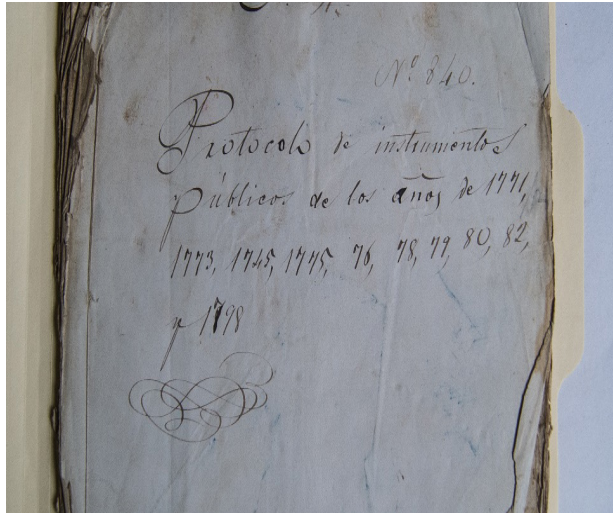 Nº 840.
Protocolo de instrumentos
públicos de los años de 1771,
1773, 1745, 1775, 76, 78, 79, 80, 82,
y 1798